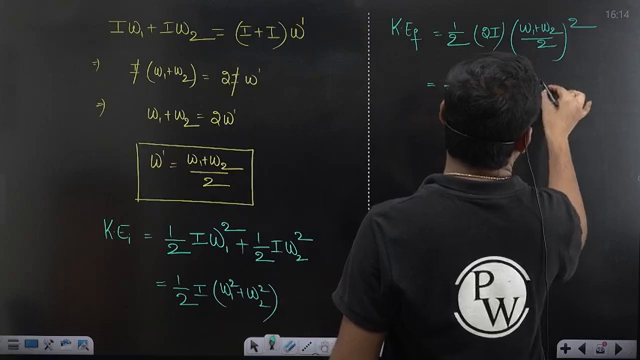 16:14
Iω₁ + Iω₂ = (I+I)ω'
⇒ I(ω₁+ω₂) = 2Iω'
⇒ ω₁+ω₂ = 2ω'
ω' = (ω₁+ω₂)/2
K·Eᵢ = 1/2 Iω₁² + 1/2 Iω₂²
= 1/2 I (ω₁²+ω₂²)
K·E_f = 1/2 (2I) ((ω₁+ω₂)/2)²
=
PW